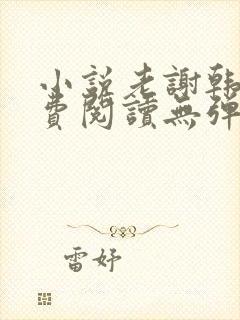 小說老謝韩
費閱讀無彈
雷妤